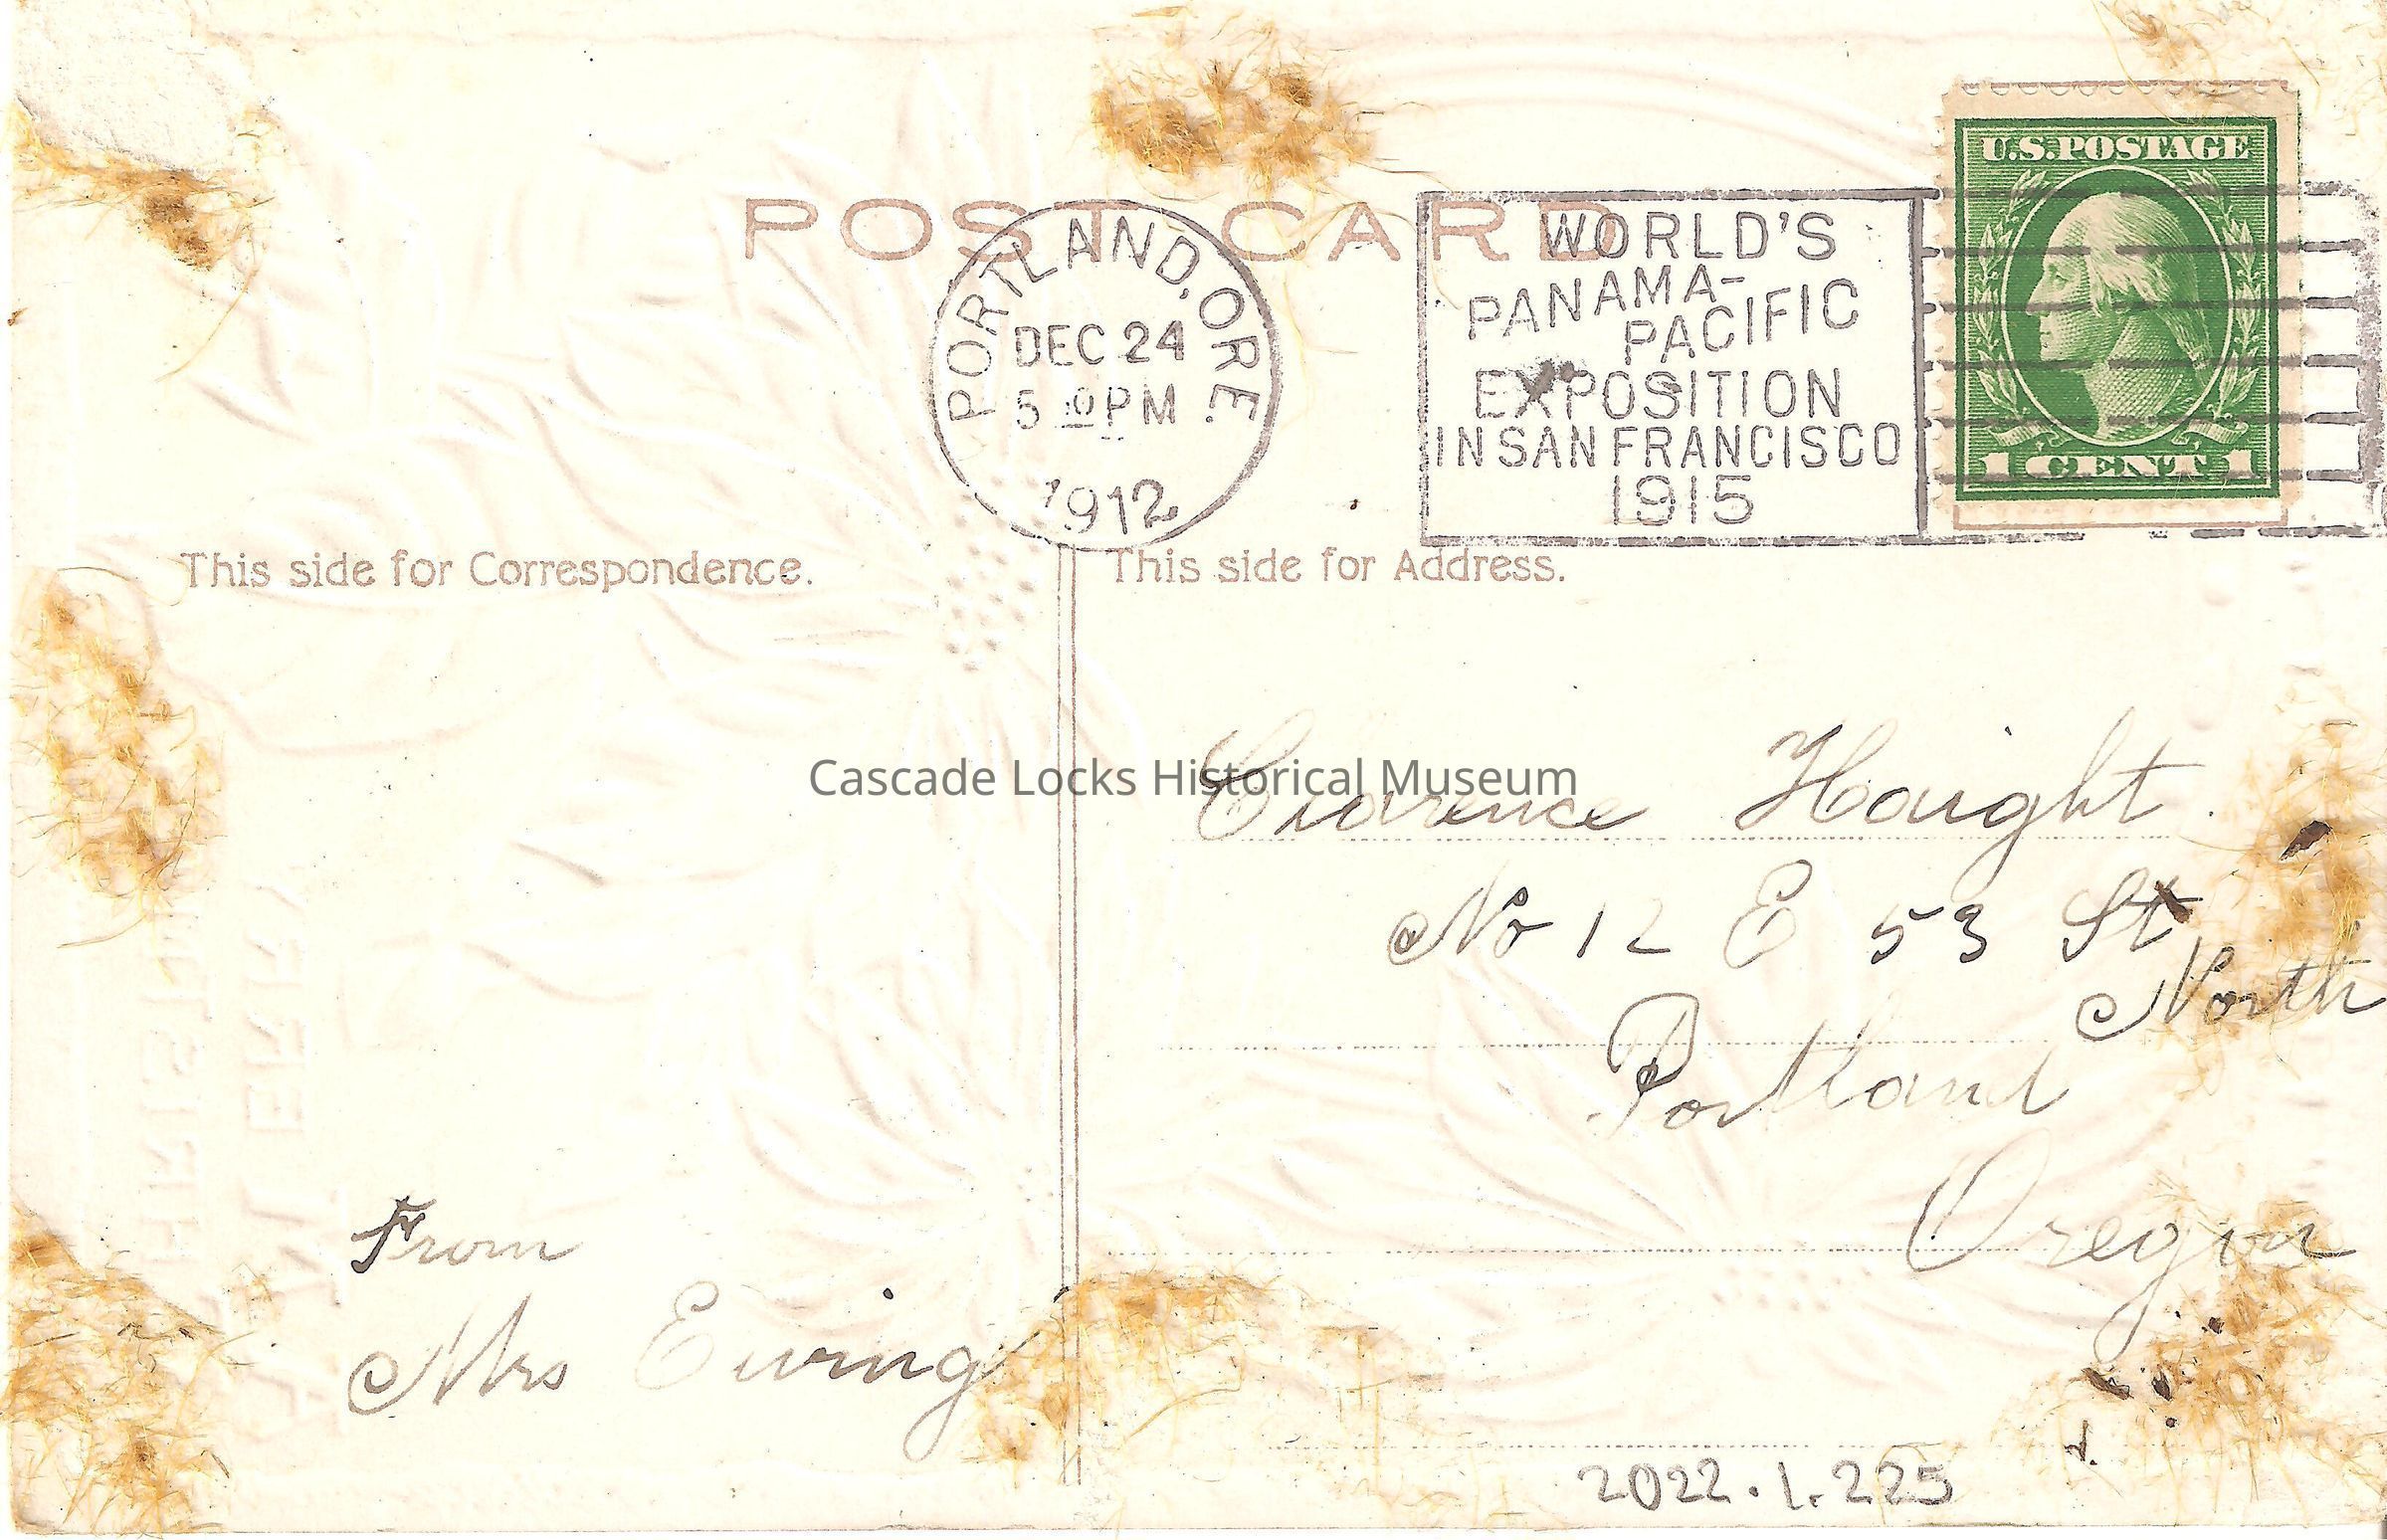 POST CARD
PORTLAND, ORE.
DEC 24
5 30 PM
1912
WORLD'S
PANAMA-
PACIFIC
EXPOSITION
IN SAN FRANCISCO
1915
U.S.POSTAGE
1 CENT 1
This side for Correspondence.
This side for Address.
Cascade Locks Historical Museum
Clarence Haight.
No 12 E 53 St
North
Portland
Oregon
From
Mrs Ewing
2022.1.225
A MERRY
CHRISTMAS